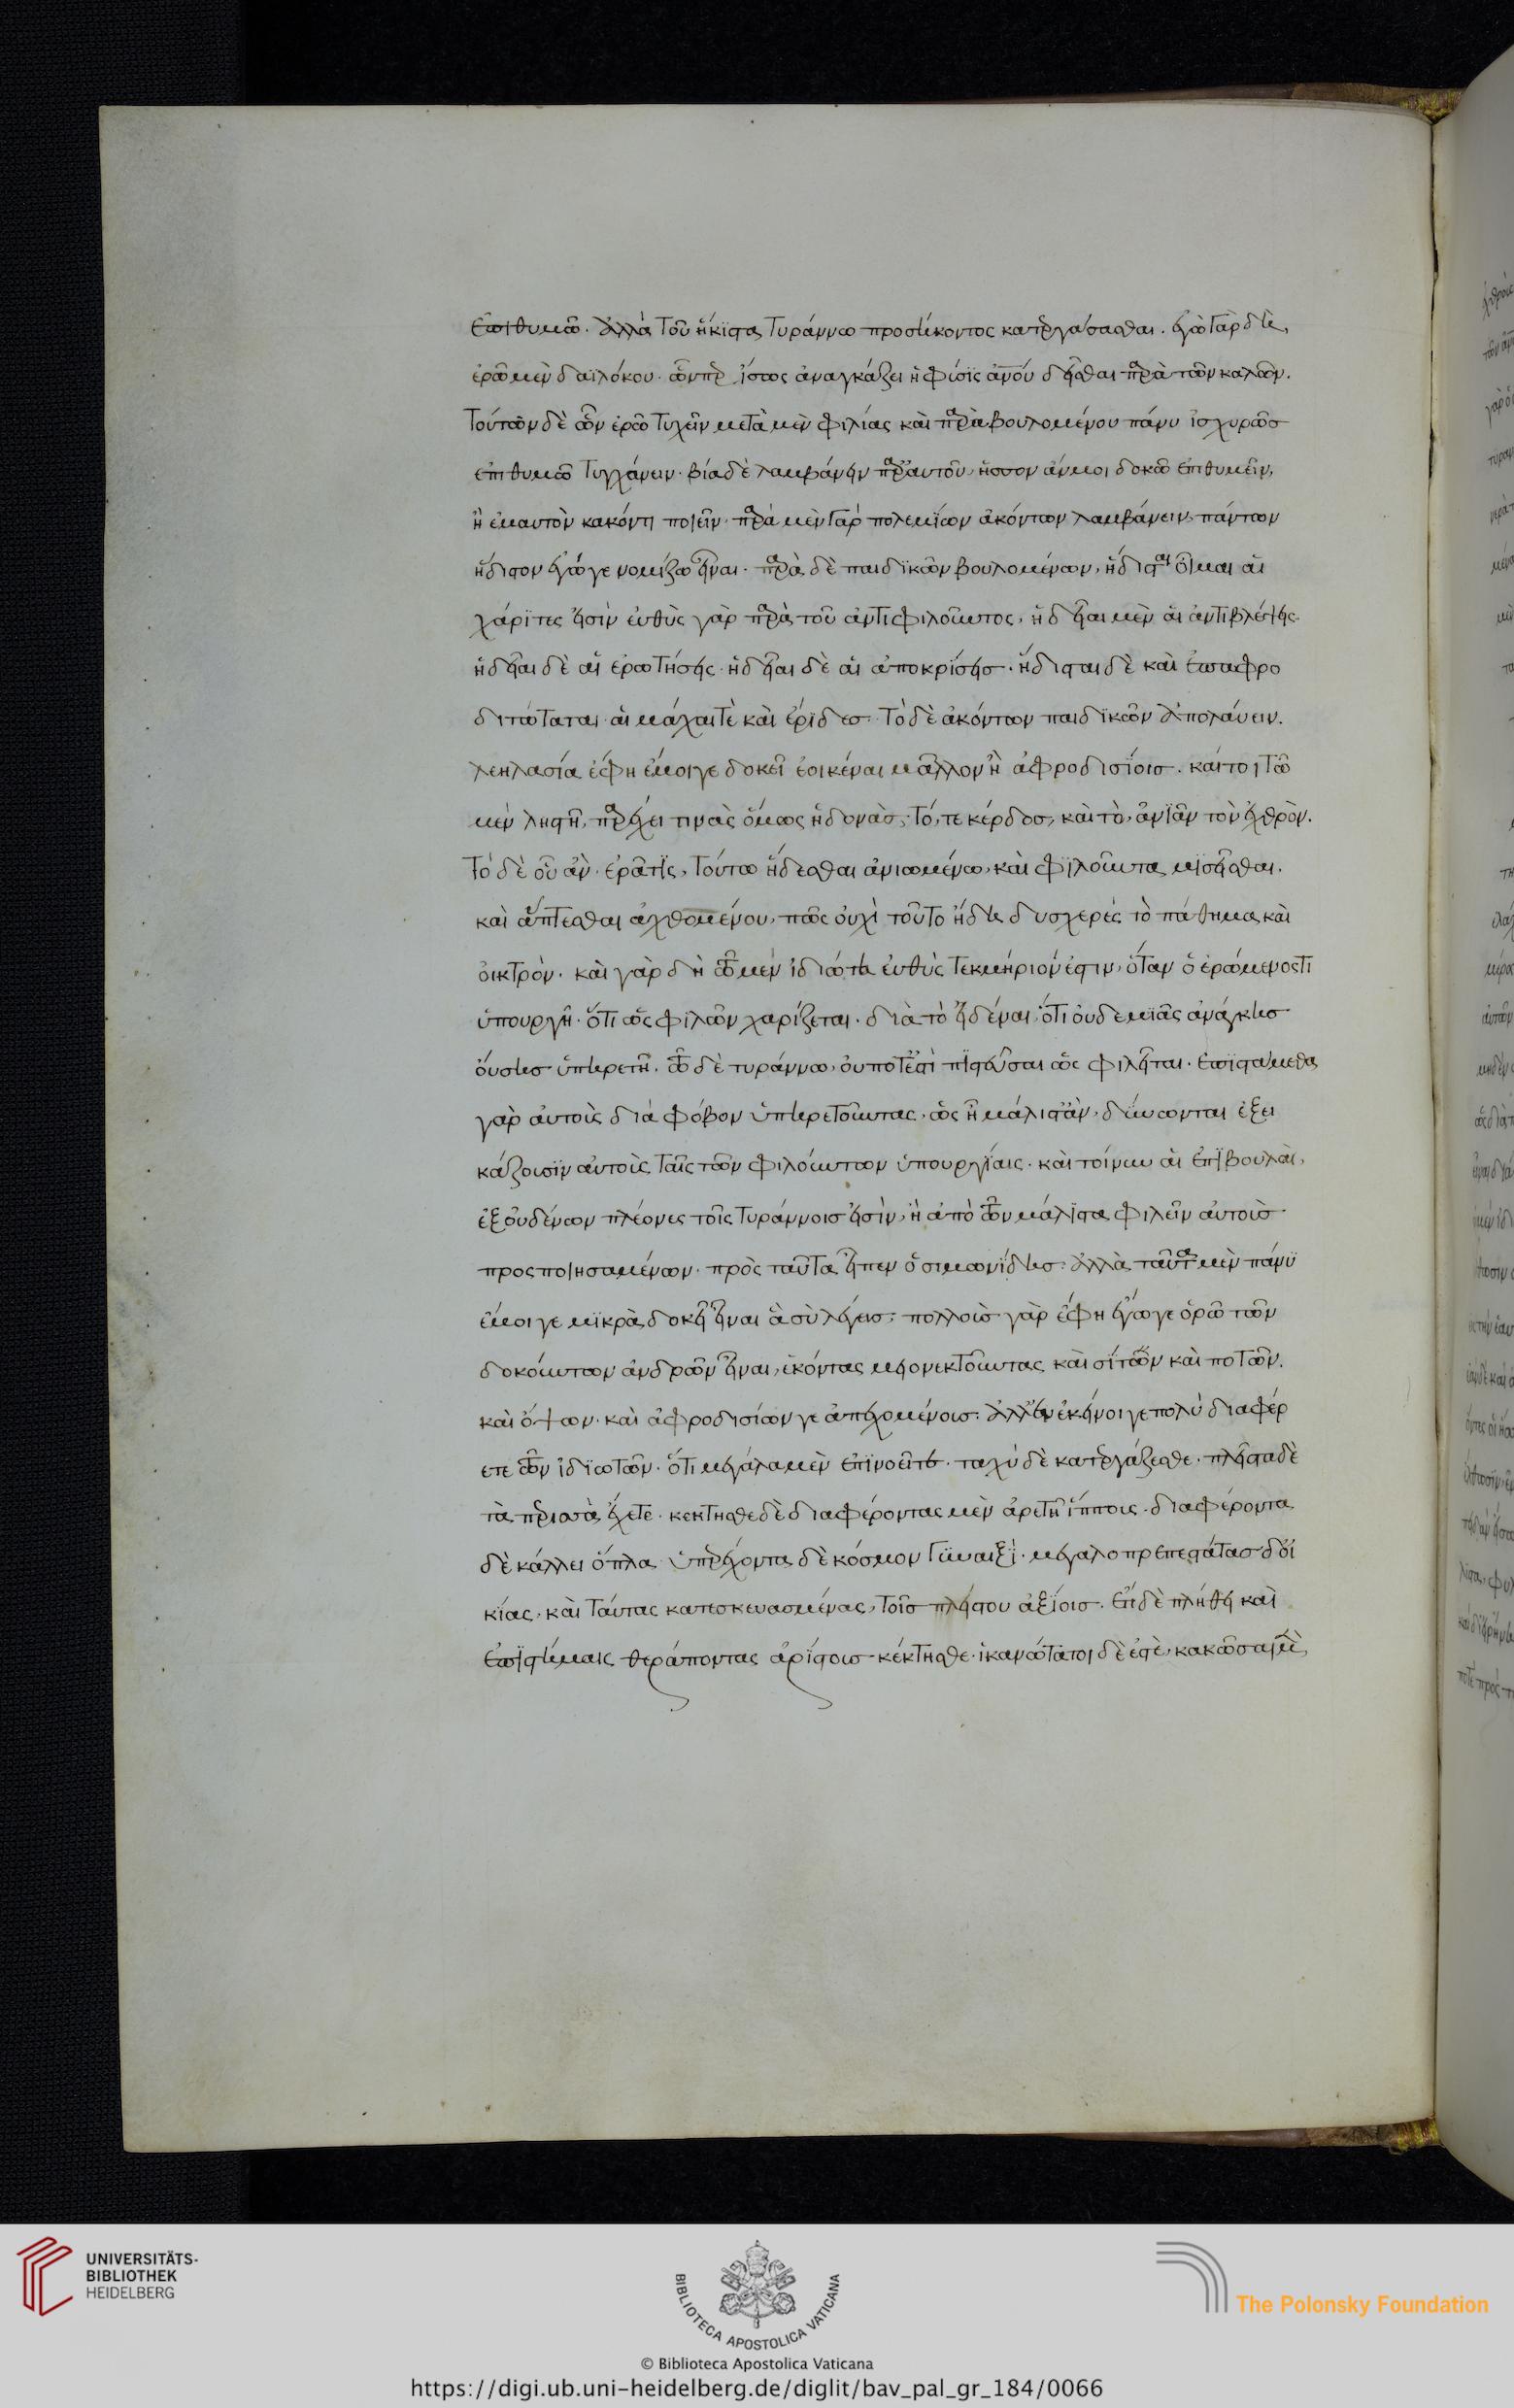 ἐπιθυμῶ. ἀλλὰ τοῦ ἥκιστα τυράννω προσήκοντος κατεργάσασθαι. ἐγὼ γὰρ δὴ
ἐρῶ μὲν δαϊλόκου. ὧνπερ ἴσως ἀναγκάζει ἡ φύσις ἀνου δεῖσθαι παρὰ τῶν καλῶν.
τούτων δὲ ὧν ἐρῶ τυχεῖν μετὰ μὲν φιλίας καὶ παρὰ βουλομένου πάνυ ἰσχυρῶς
ἐπιθυμῶ τυγχάνειν. βία δὲ λαμβάνειν παρ αὐτοῦ, ἧσσον ἄν μοι δοκῶ ἐπιθυμεῖν,
ἢ ἐμαυτὸν κακόν τι ποιεῖν. παρὰ μὲν γὰρ πολεμίων ἀκόντων λαμβάνειν, πάντων
ἥδιστον ἔγώγε νομίζω εἶναι. παρὰ δὲ παιδικῶν βουλομένων, ἥδισται οἶμαι αἱ
χάριτες εἰσὶν εὐθὺς γὰρ παρὰ τοῦ ἀντιφιλοῦντος, ἡδεῖαι μὲν αἱ ἀντιβλέψεις.
ἡδεῖαι δὲ αἱ ἐρωτήσεις. ἡδεῖαι δὲ αἱ ἀποκρίσεις. ἥδισται δὲ καὶ ἐπαφρο
διτώταται αἱ μάχαι τὲ καὶ ἔριδες. τὸ δὲ ἀκόντων παιδικῶν ἀπολάυειν.
λεηλασία ἔφη ἔμοιγε δοκεῖ ἐοικέναι μᾶλλον ἢ ἀφροδισίοις. καίτοι τῶ
μὲν ληστῆ, παρέχει τινὰς ὅμως ἡδονὰς, τό, τε κέρδος, καὶ τὸ, ἀνιᾶν τὸν ἐχθρὸν.
τὸ δὲ οὗ ἂν ἐρᾶ τὶς, τούτω ἥδεσθαι ἀνιωμένω, καὶ φιλοῦντα μισεῖσθαι.
καὶ ἅπτεσθαι ἀχθομένου, πῶς οὐχὶ τοῦτο ἤδη δυσχερὲς τὸ πάθημα καὶ
οἰκτρόν. καὶ γὰρ δὴ τῶ μὲν ἰδιώτη εὐθὺς τεκμήριον ἐστιν, ὅταν ὁ ἐρώμενος τι
ὑπουργῆ. ὅτι ὡς φιλῶν χαρίζεται. διὰ τὸ εἰδέναι, ὅτι οὐδεμιᾶς ἀνάγκης
οὔσης ὑπηρετῆ. τῶ δὲ τυράννω, ου ποτ ἐστὶ πιστεῦσαι ὡς φιλεῖται. ἐπιστάμεθα
γὰρ αὐτοὺς διὰ φόβον ὑπηρετοῦντας. ὡς ἧ μάλιστ ἂν, δύνωνται ἐξει
κάζουσιν αὐτοὺς ταῖς τῶν φιλούντων ὑπουργίαις. καὶ τοίνυν αἱ ἐπιβουλαὶ,
ἐξ οὐδένων πλέονες τοῖς τυράννοις εἰσὶν, ἢ ἀπὸ τῶν μάλιστα φιλεῖν αὐτοὺς
προσποιησαμένων. πρὸς ταῦτα εἶπεν ὁ σιμωνίδης. ἀλλὰ ταῦτα μὲν πάνυ
ἔμοιγε μικρὰ δοκεῖ εἶναι ἃ σὺ λέγεις. πολλοὺς γὰρ ἔφη ἔγωγε ὁρῶ τῶν
δοκούντων ἀνδρῶν εἶναι, ἑκόντας μειονεκτοῦντας καὶ σίτων καὶ ποτῶν.
καὶ ὄψων. καὶ ἀφροδισίων γε ἀπεχομένοις. ἀλλ ἐν ἐκείνοι γε πολὺ διαφέρ
ετε τῶν ἰδιωτῶν. ὅτι μεγάλα μὲν ἐπινοεῖτε. ταχὺ δὲ κατεργάζεσθε. πλεῖστα δὲ
τὰ περισσὰ ἔχετε. κέκτησθε δὲ διαφέροντας μὲν ἀρετῆ ἵππους. διαφέροντα
δὲ κάλλει ὅπλα. ὑπερέχοντα δὲ κόσμον γυναιξὶ. μεγαλοπρεπεστάτας δ οἰ
κίας, καὶ ταύτας κατεσκευασμένας, τοῖς πλείστου ἀξίοις. ἔτι δὲ πλήθει καὶ
ἐπιστήμαις θεράποντας ἀρίστους κέκτησθε. ἱκανώτατοι δὲ ἐστὲ, κακῶσαι μὲ
UNIVERSITÄTS-
BIBLIOTHEK
HEIDELBERG
BIBLIOTECA APOSTOLICA VATICANA
The Polonsky Foundation
© Biblioteca Apostolica Vaticana
https://digi.ub.uni-heidelberg.de/diglit/bav_pal_gr_184/0066